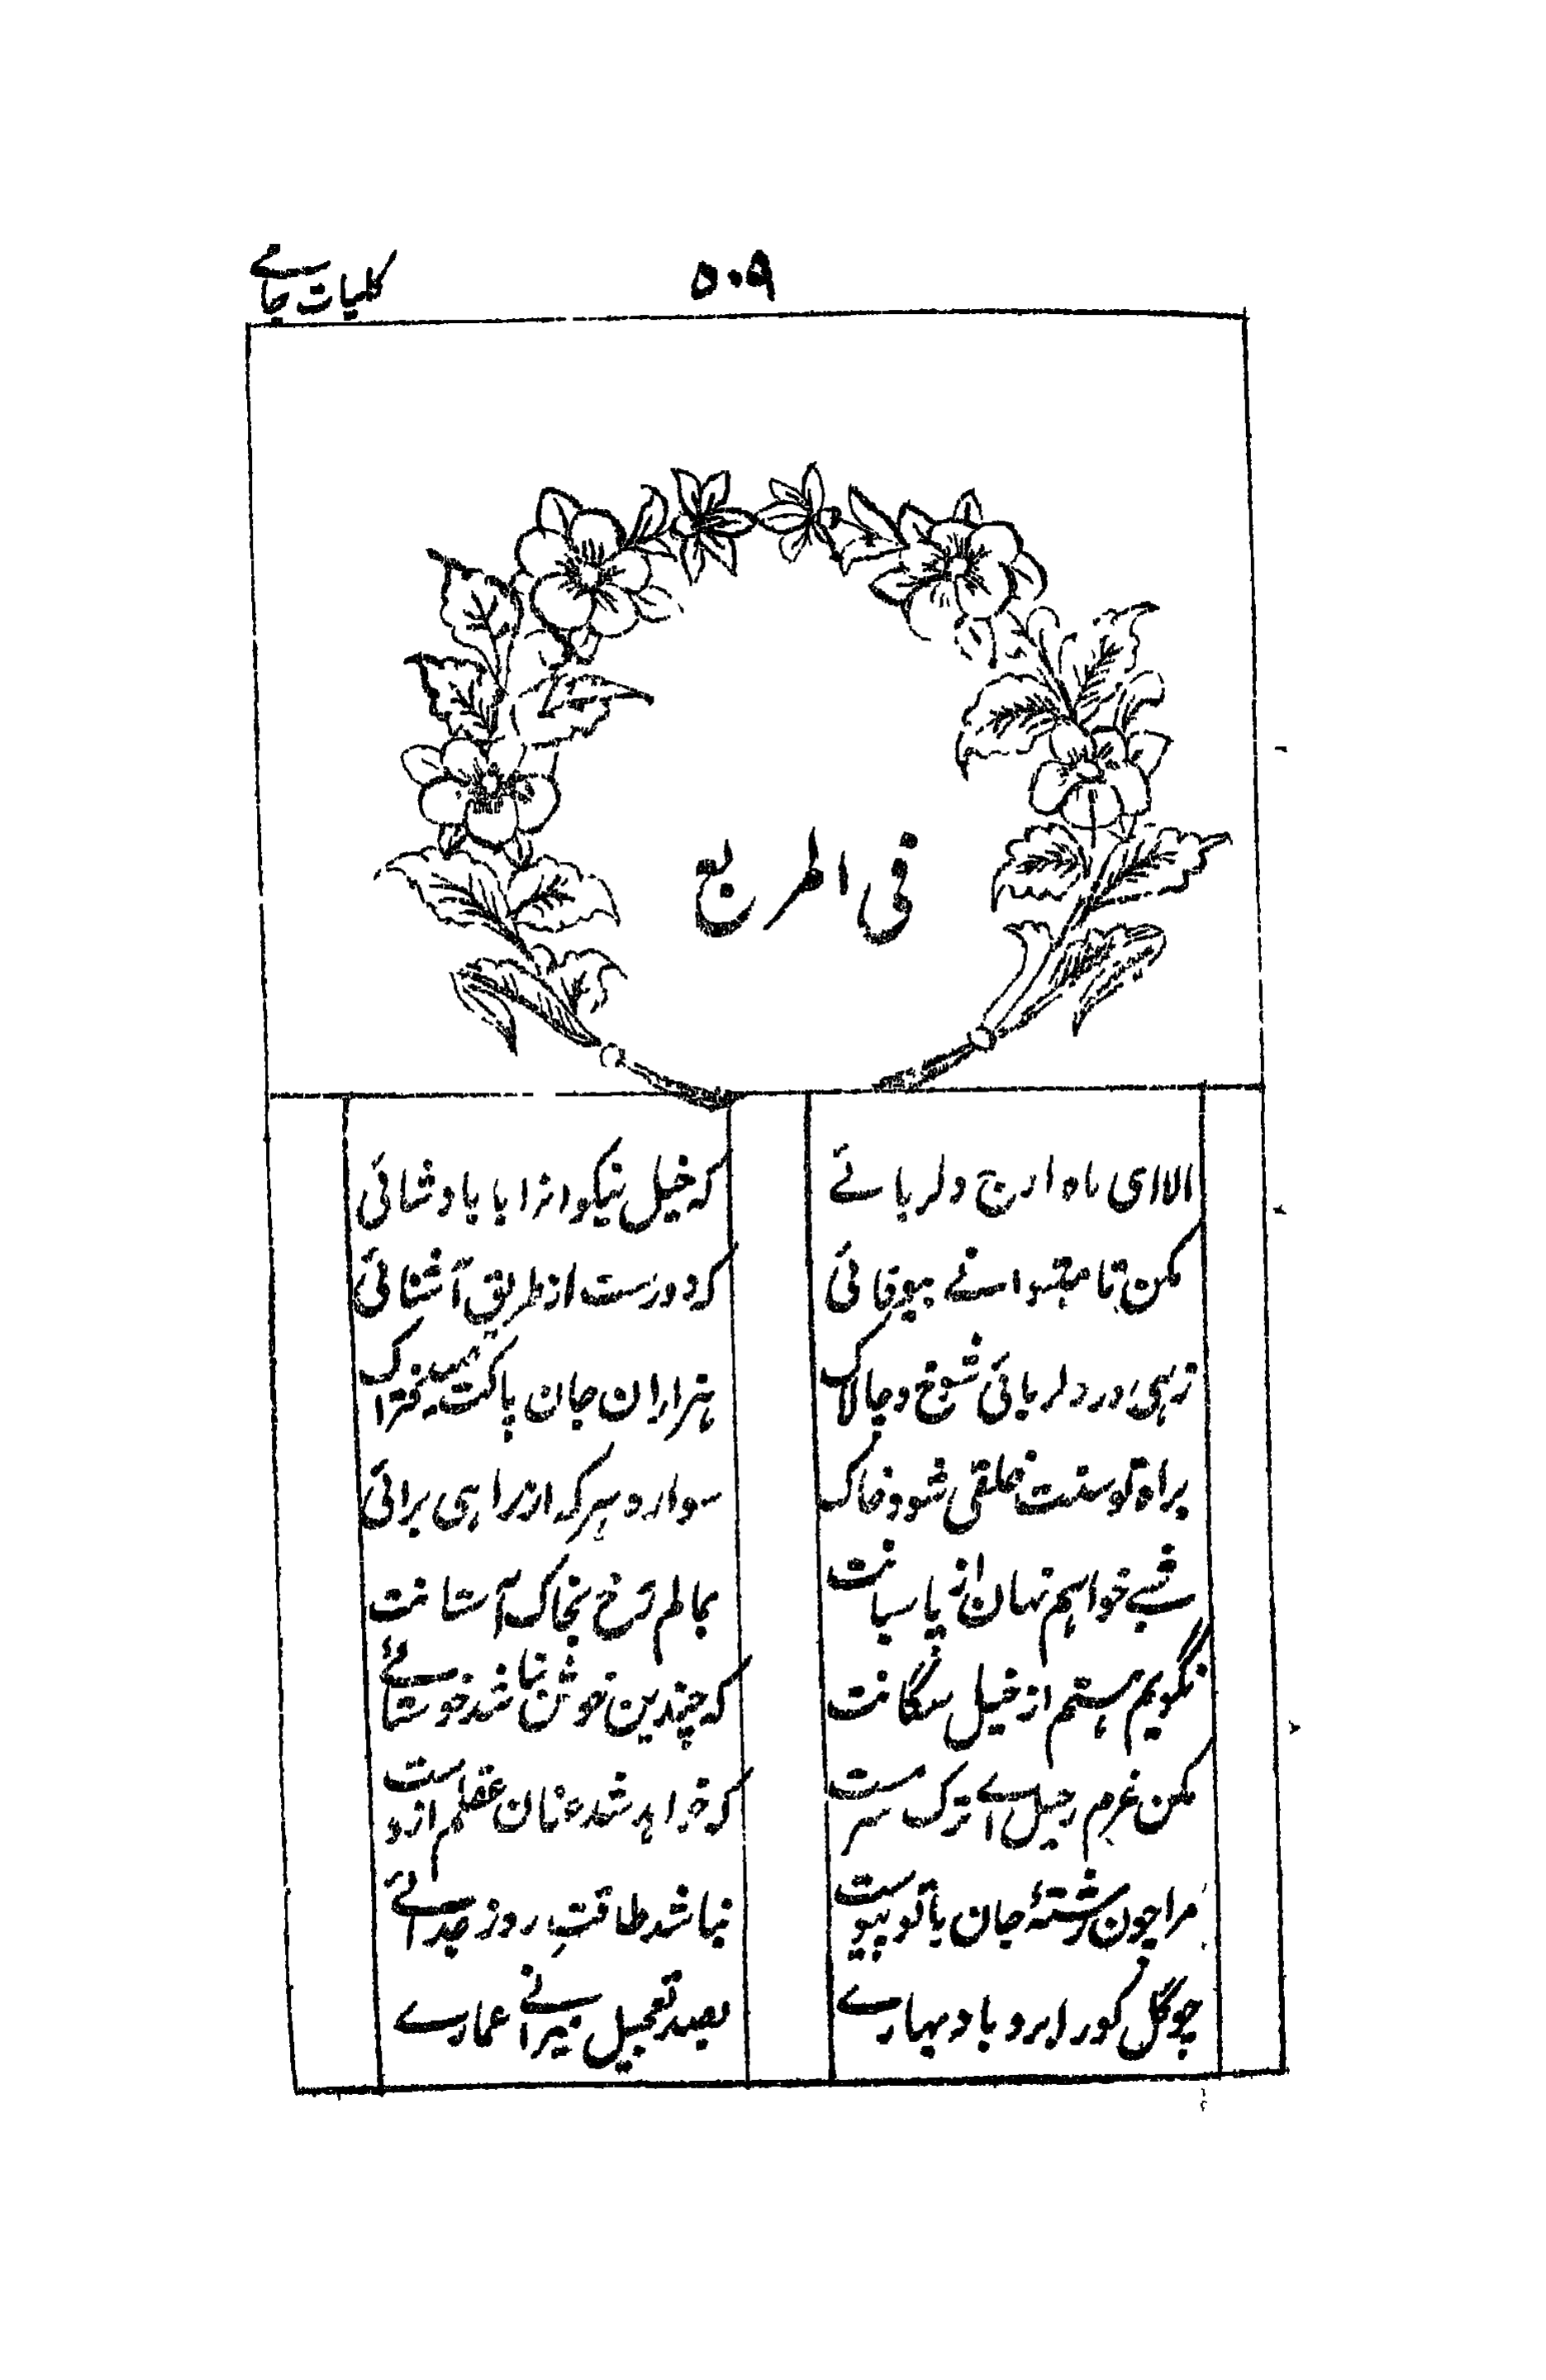 کلیات جامے
۵۰۹
فی المربع
الا ای ماه اوج دلربائے
که خیل نیکوانرا بادشائی
مکن تا میتوانے بیوفائی
که دورست از طریق آشنائی
زهی در دلربائی شوخ و چالاک
هزاران جان پاکت صید فتراک
براه توسنت خلقی شود خاک
سواره هر که از راهی برائی
شبے خواهم نهان از پاسبانت
بمالم رخ بخاک آستانت
نگویم هستم از خیل سگانت
که چندین خوش نباشد خودستائے
مکن عزم رحیل اے ترک سرمست
که خواهد شد عنان عقلم از دست
مرا چون رشتۀ جان با تو پیوست
نباشد طاقتِ روز جدائے
چو گل کورا برد باد بهارے
بصد تعجیل میرانے عمارے